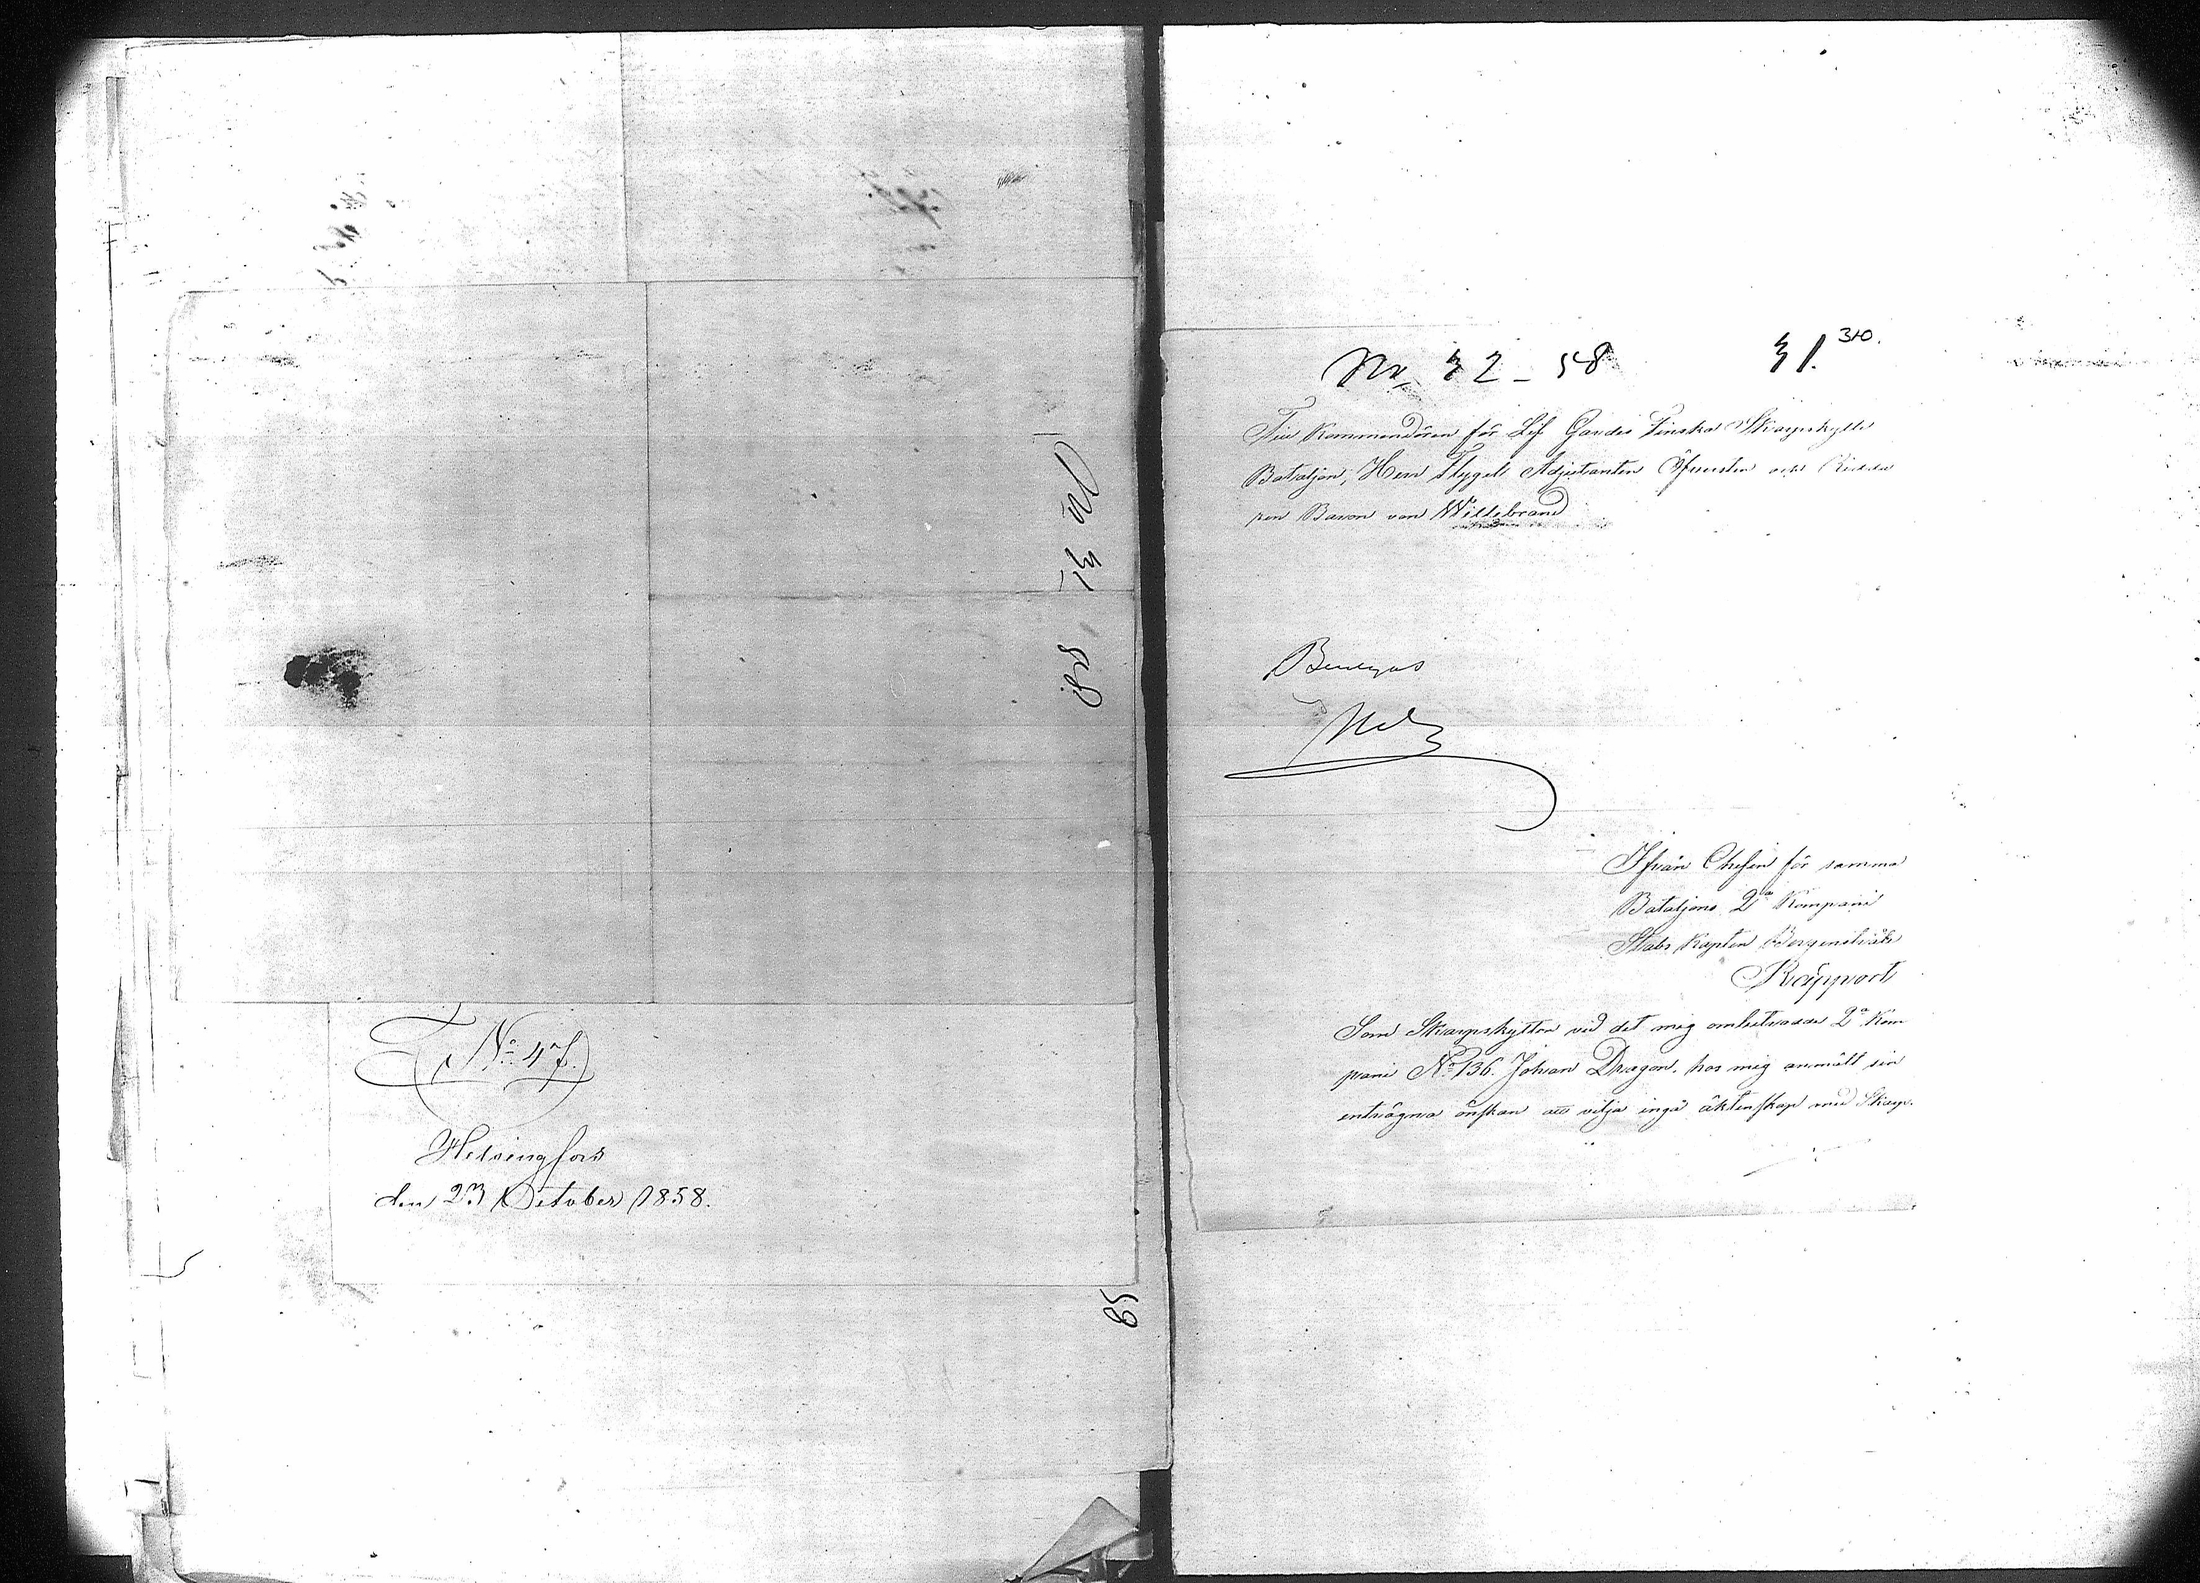 No 31
58
No 47.
Helsingfors
den 23 October 1858.
58
No 32 - 58
31. 310.
Till Kommendören för Lif Gardes Finska Skarpskytte
Bataljon, Herr Flygel Adjutanten Öfversten och Ridda
ren Baron von Willebrand
Beviljas
Ifrån Chefen för samma
Bataljons 2a Kompani
Stabs Kapten Bergenstråle
Rapport
Som Skarpskytten vid det mig ombetrodda 2a Kom
pani No 136. Johan Dragon. hos mig anmält sin
enträgna önskan att vilja ingå äktenskap med Skarp-